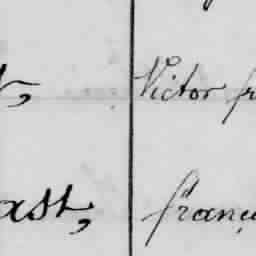 Victor fr
ast, franç